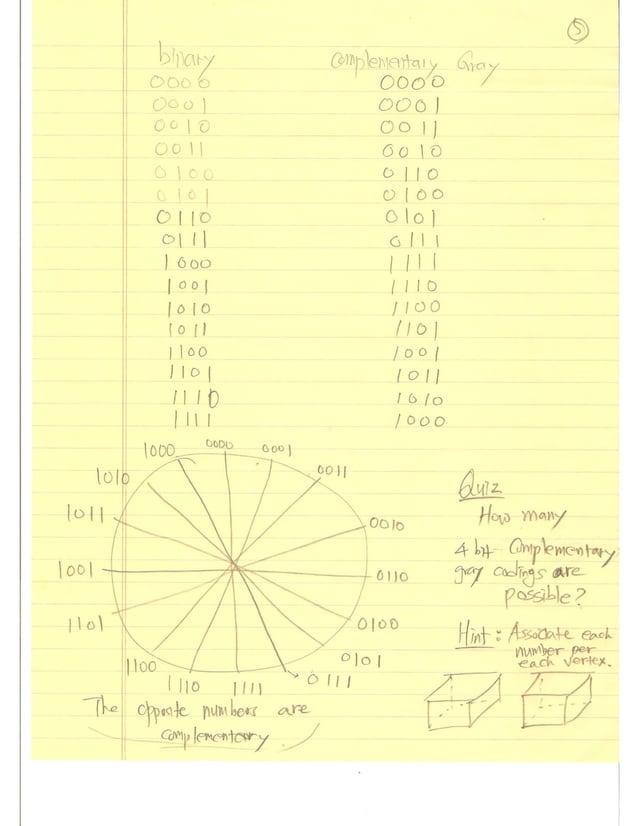 5
binary complementary Gray
0000 0000
0001 0001
0010 0011
0011 0010
0100 0110
0101 0100
0110 0101
0111 0111
1000 1111
1001 1110
1010 1100
1011 1101
1100 1001
1101 1011
1110 1010
1111 1000
1000 0000 0001
1010 0011
1011 0010
1001 0110
1101 0100
1100 0101
1110 1111 0111
The opposite numbers are
complementary
Quiz
How many
4 bit complementary
gray codings are
possible?
Hint: Associate each
number per
each vertex.